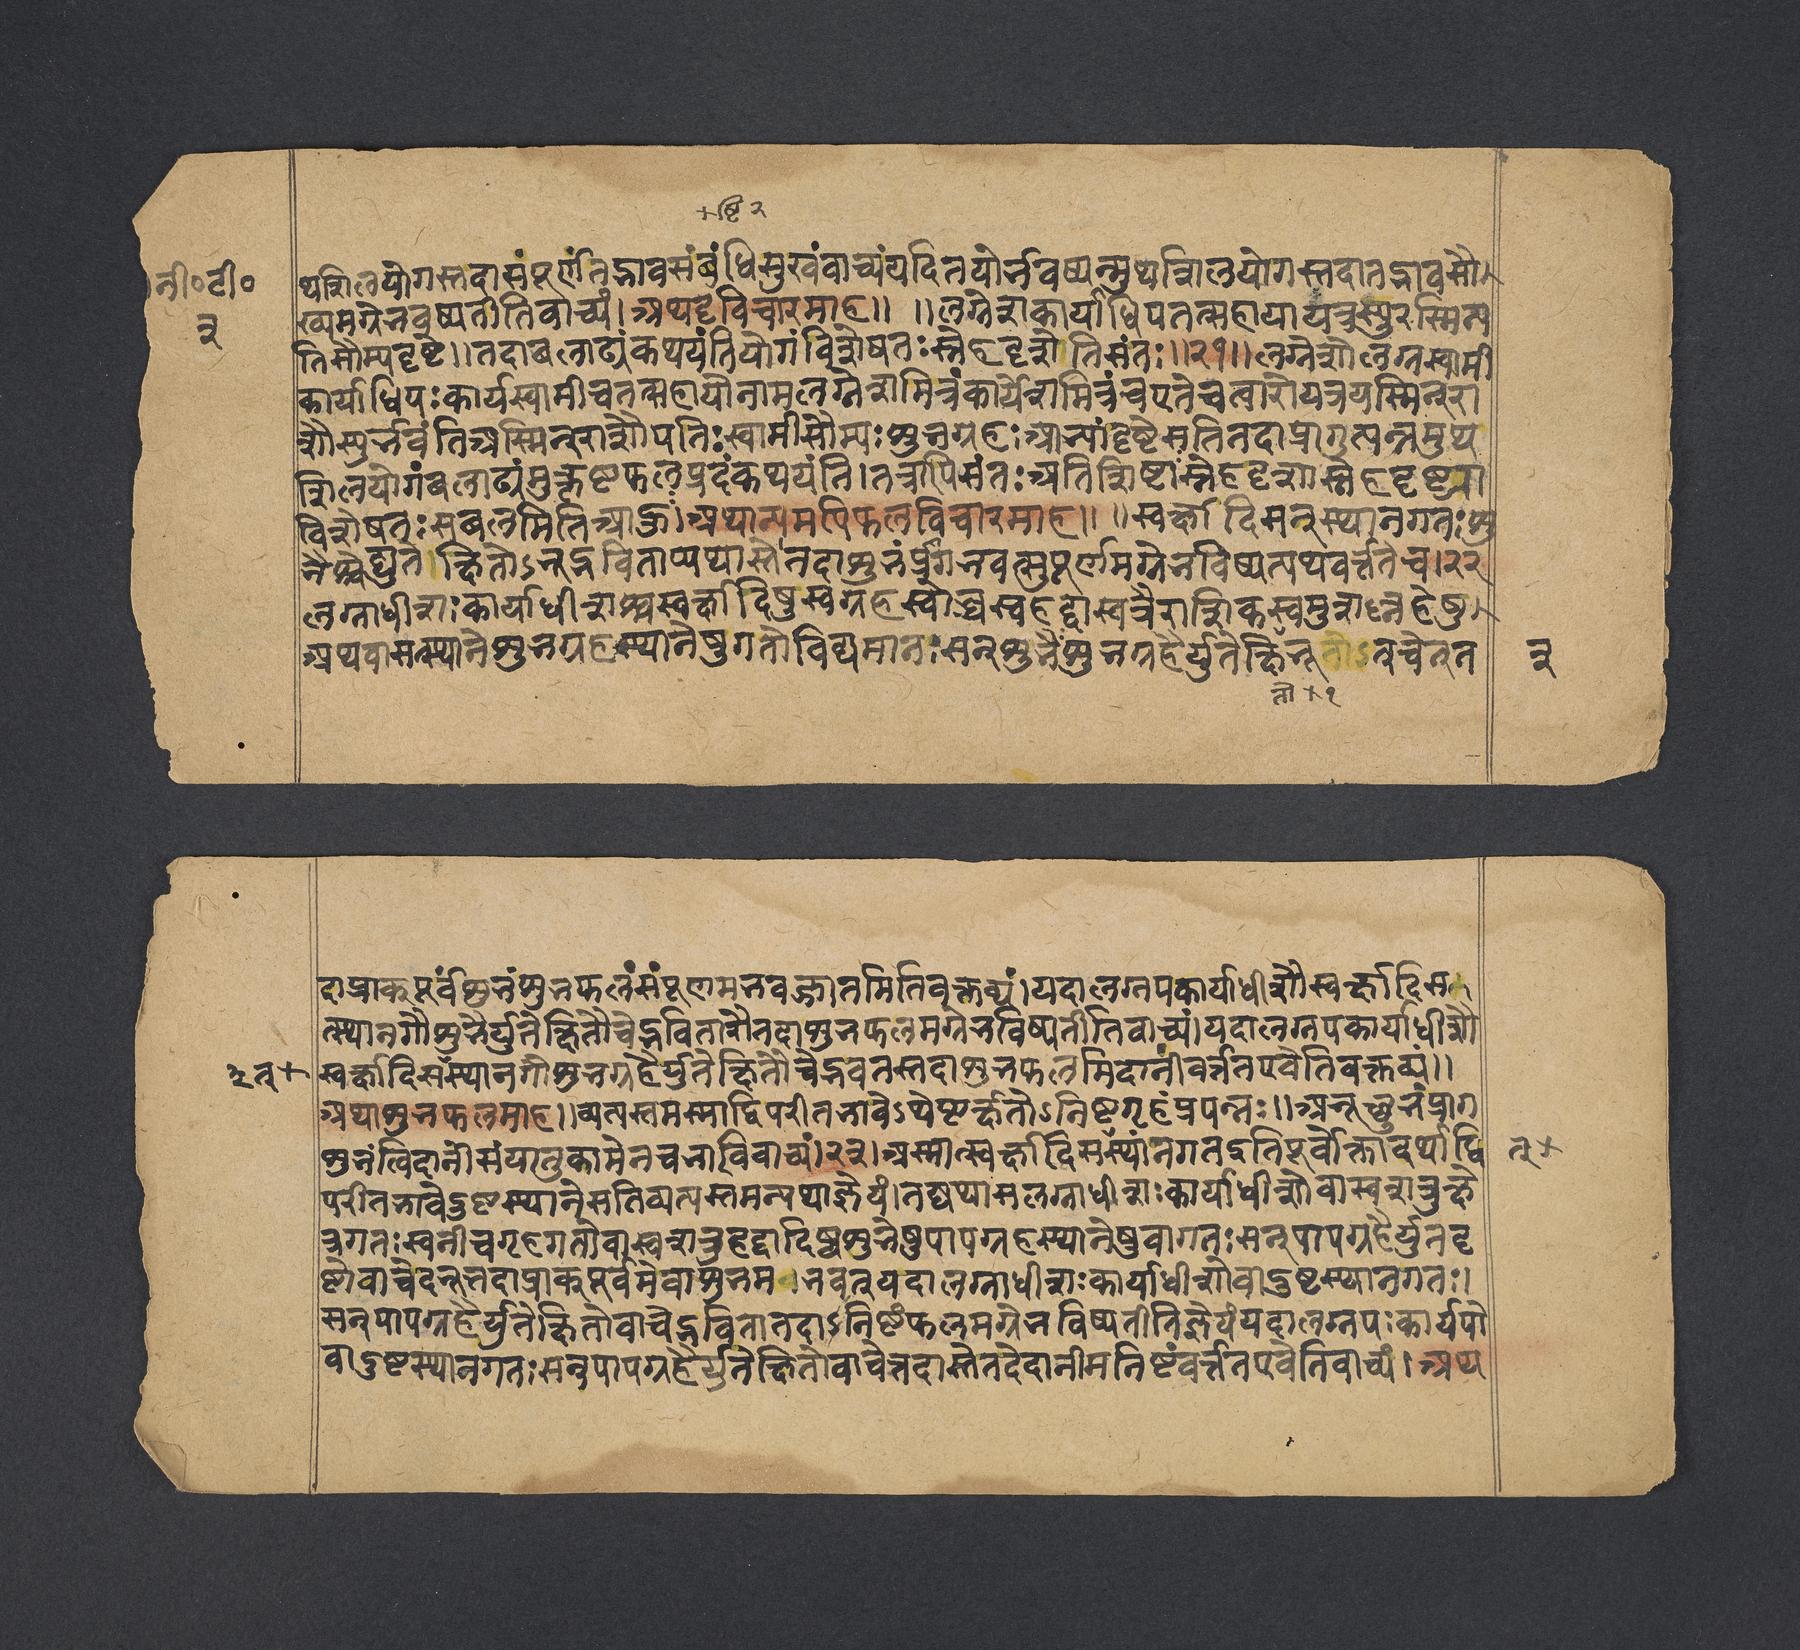 +ष्टि २
नी॰टी॰
३
त्थशिलयोगस्तदासंपूर्णंतद्भावसंबंधिसुखंवाच्यंयदितयोर्भविष्यन्मुथशिलयोगस्तदातद्भावसौ
ख्यमग्रेभविष्यतीतिवाच्यं।अथदृविचारमाह॥ ॥लग्नेशकार्याधिपतत्सहायायत्रस्युरस्मिन्प
तिसौम्यदृष्टे॥तदाबलाढ्यंकथयंतियोगंविशेषतःस्नेहदृशेतिसंतः॥२१॥लग्नेशोलग्नस्वामी
कार्याधिपःकार्यस्वामीचतत्सहायौनामलग्नेशमित्रंकार्येशमित्रंचएतेचत्वारोयत्रयस्मिन्रा
शौस्युर्भवंतिअस्मिन्राशौपतिःस्वामीसौम्यःशुभग्रहःआभ्यांदृष्टेसतितदाप्रागुत्पन्नमुथ
शिलयोगंबलाढ्यंमुत्कृष्टफलप्रदंकथयंति।तत्रापिसंतःअतिशिष्टाःस्नेहदृशास्नेहदृष्ट्या
विशेषतःसबलमितिआहुः।अथान्यमपिफलविचारमाह॥ ॥स्वर्क्षादिसत्स्थानगतःशु
भैश्चेद्युतेक्षितोऽभूद्भविताप्यथास्तेतदाशुभंप्रागभवत्सुपूर्णमग्रेभविष्यत्यथवर्त्ततेच।२२
लग्नाधीशःकार्याधीशश्चस्वर्क्षादिषुस्वग्रहस्वोच्चस्वहद्दास्वत्रैराशिकस्वमुशल्लहेषु
अथवासत्स्थानेशुभग्रहस्थानेषुगतोविद्यमानःसन्शुभैःशुभग्रहैर्युतेक्षितोऽभूच्चेत्त
३
तो+१
दाप्राक्पूर्वंशुभंशुभफलंसंपूर्णमभवज्जातमितिवक्तव्यं।यदालग्नपकार्याधीशौस्वर्क्षादिस
त्स्थानगौशुभैर्युतेक्षितौचेद्भवितारौतदाशुभफलमग्रेभविष्यतीतिवाच्यं।यदालग्नपकार्याधीशौ
स्वर्क्षादिसंस्थानगौशुभग्रहैर्युतेक्षितौचेद्भवतस्तदाशुभफलमिदानींवर्त्ततएवेतिवक्तव्यं॥
२त्+
अथाशुभफलमाह॥व्यत्यस्तमस्माद्विपरीतभावेऽथेष्टर्क्षतोऽनिष्टगृहंप्रपन्नः॥अभूच्छुभंप्राग
शुभंत्विदानींसंयातुकामेनचभाविवाच्यं।२३।अस्मात्स्वर्क्षादिसंस्थानगतइतिपूर्वोक्तादर्थाद्वि
त्+
परीतभावेदुष्टस्थानेसतिव्यत्यस्तमन्यथाज्ञेयं।तद्यथासलग्नाधीशःकार्याधीशोवास्वशत्रुक्षे
त्रगतःस्वनीचगृहगतोवास्वशत्रुहद्दादिष्वशुभेषुपापग्रहस्थानेषुवागतःसन्पापग्रहैर्युतदृ
ष्टोवाचेदभूत्तदाप्राक्पूर्वमेवाशुभमभवत्यदालग्नाधीशःकार्याधीशोवादुष्टस्थानगतः।
सन्पापग्रहैर्युतेक्षितोवाचेद्भवितातदाऽनिष्टंफलमग्रेभविष्यतीतिज्ञेयंयदालग्नपःकार्यपो
वादुष्टस्थानगतःसन्पापग्रहैर्युतेक्षितोवाचेत्तदास्तेतदेदानीमनिष्टंवर्त्ततएवेतिवाच्यं।अथ